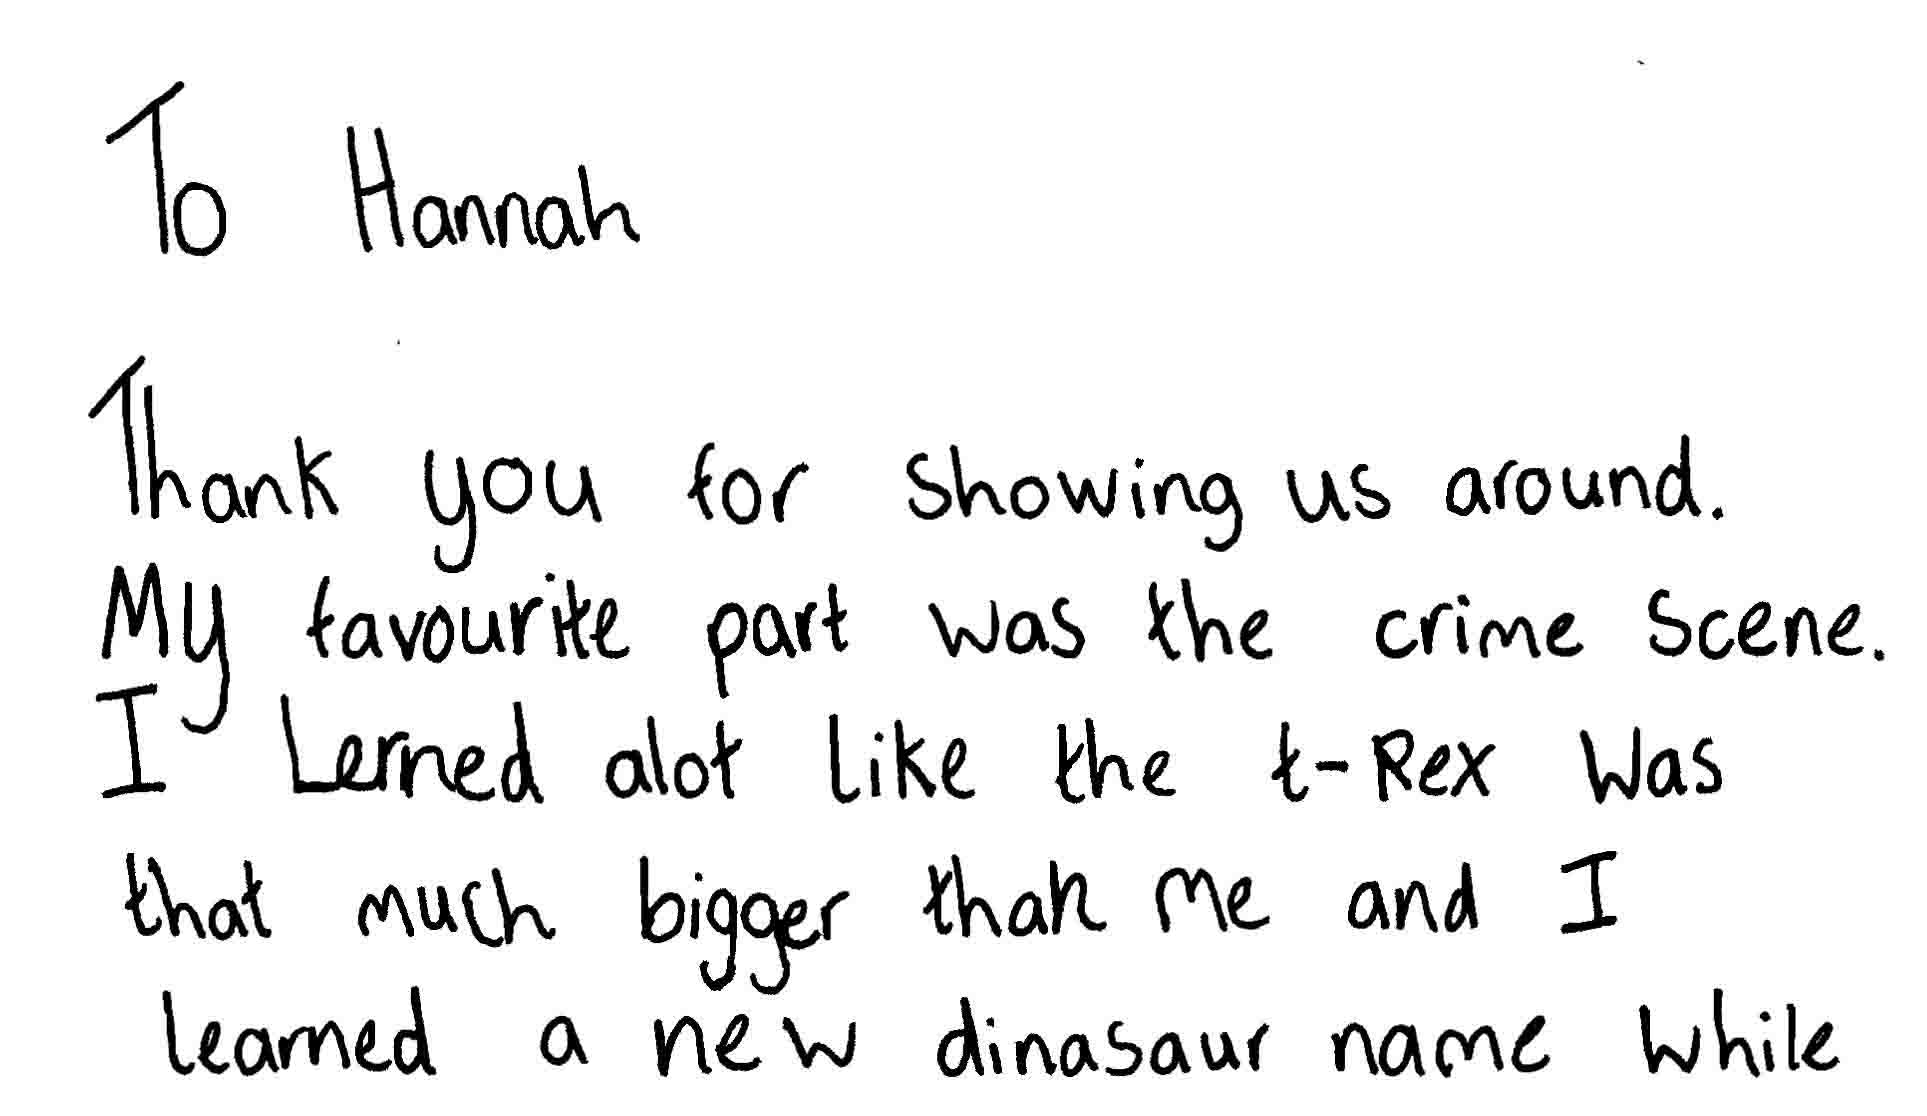 To Hannah
Thank you for showing us around.
My favourite part was the crime scene.
I Lerned alot like the t-Rex was
that much bigger than me and I
learned a new dinasaur name while